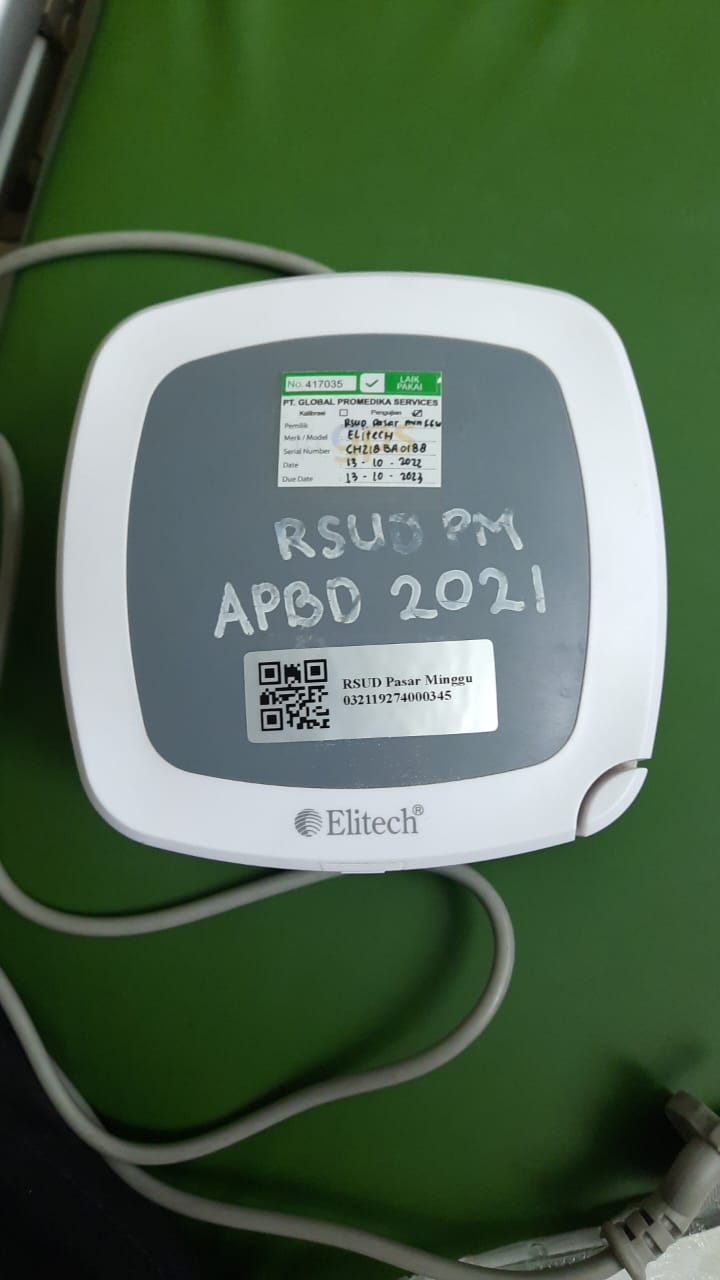 No. 417035 LAIK PAKAI
PT. GLOBAL PROMEDIKA SERVICES
Kalibrasi Pengujian
Pemilik RSUD Pasar Minggu
Merk / Model ELITECH
Serial Number CH218BA0188
Date 13 - 10 - 2022
Due Date 13 - 10 - 2023
RSUD PM
APBD 2021
RSUD Pasar Minggu
032119274000345
Elitech®